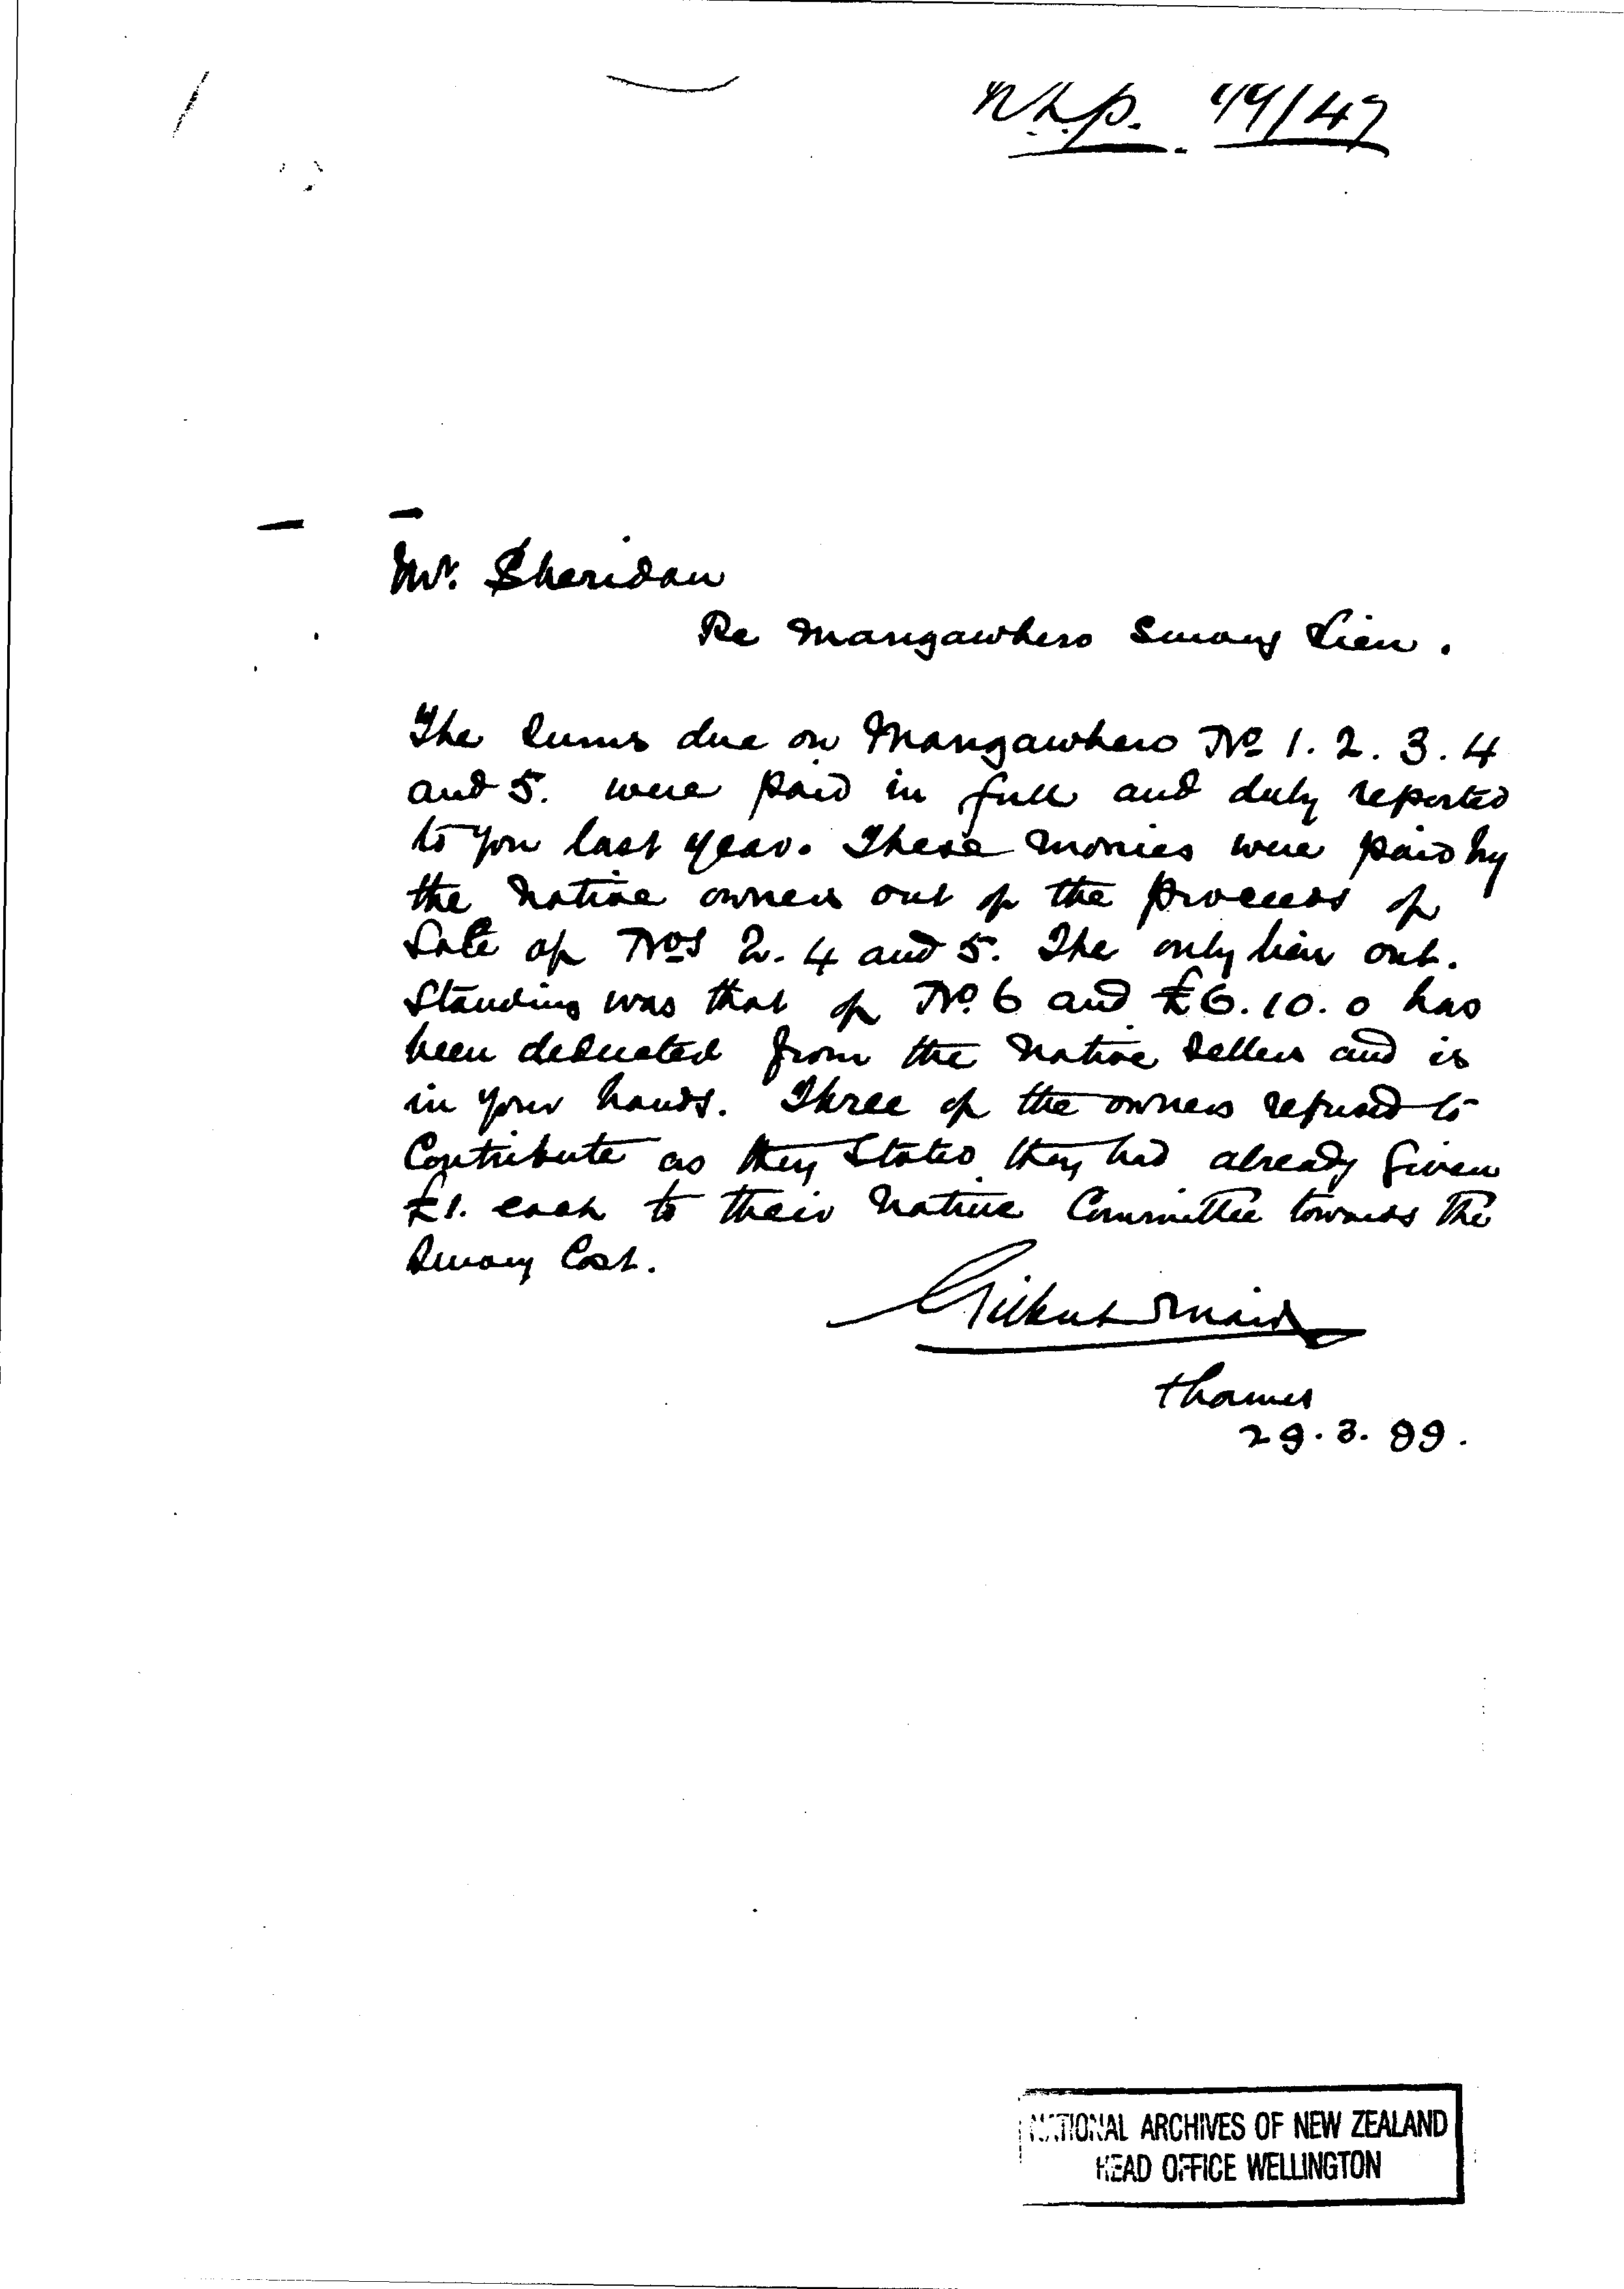 N.L.P. 99/47
Mr. Sheridan
Re Mangawhero Survey Lien.
The Sums due on Mangawhero No 1. 2. 3. 4
and 5. were paid in full and duly reported
to you last year. These monies were paid by
the Native owners out of the proceeds of
Sale of Nos 2. 4 and 5. The only lien out.
Standing was that of No. 6 and £6.10.0 has
been deducted from the Native Sellers and is
in your hands. Three of the owners refused to
Contribute as they Stated they had already given
£1. each to their Native Committee towards the
Survey Cost.
Gilbert Mair
Thames
29.3.99.
NATIONAL ARCHIVES OF NEW ZEALAND
HEAD OFFICE WELLINGTON